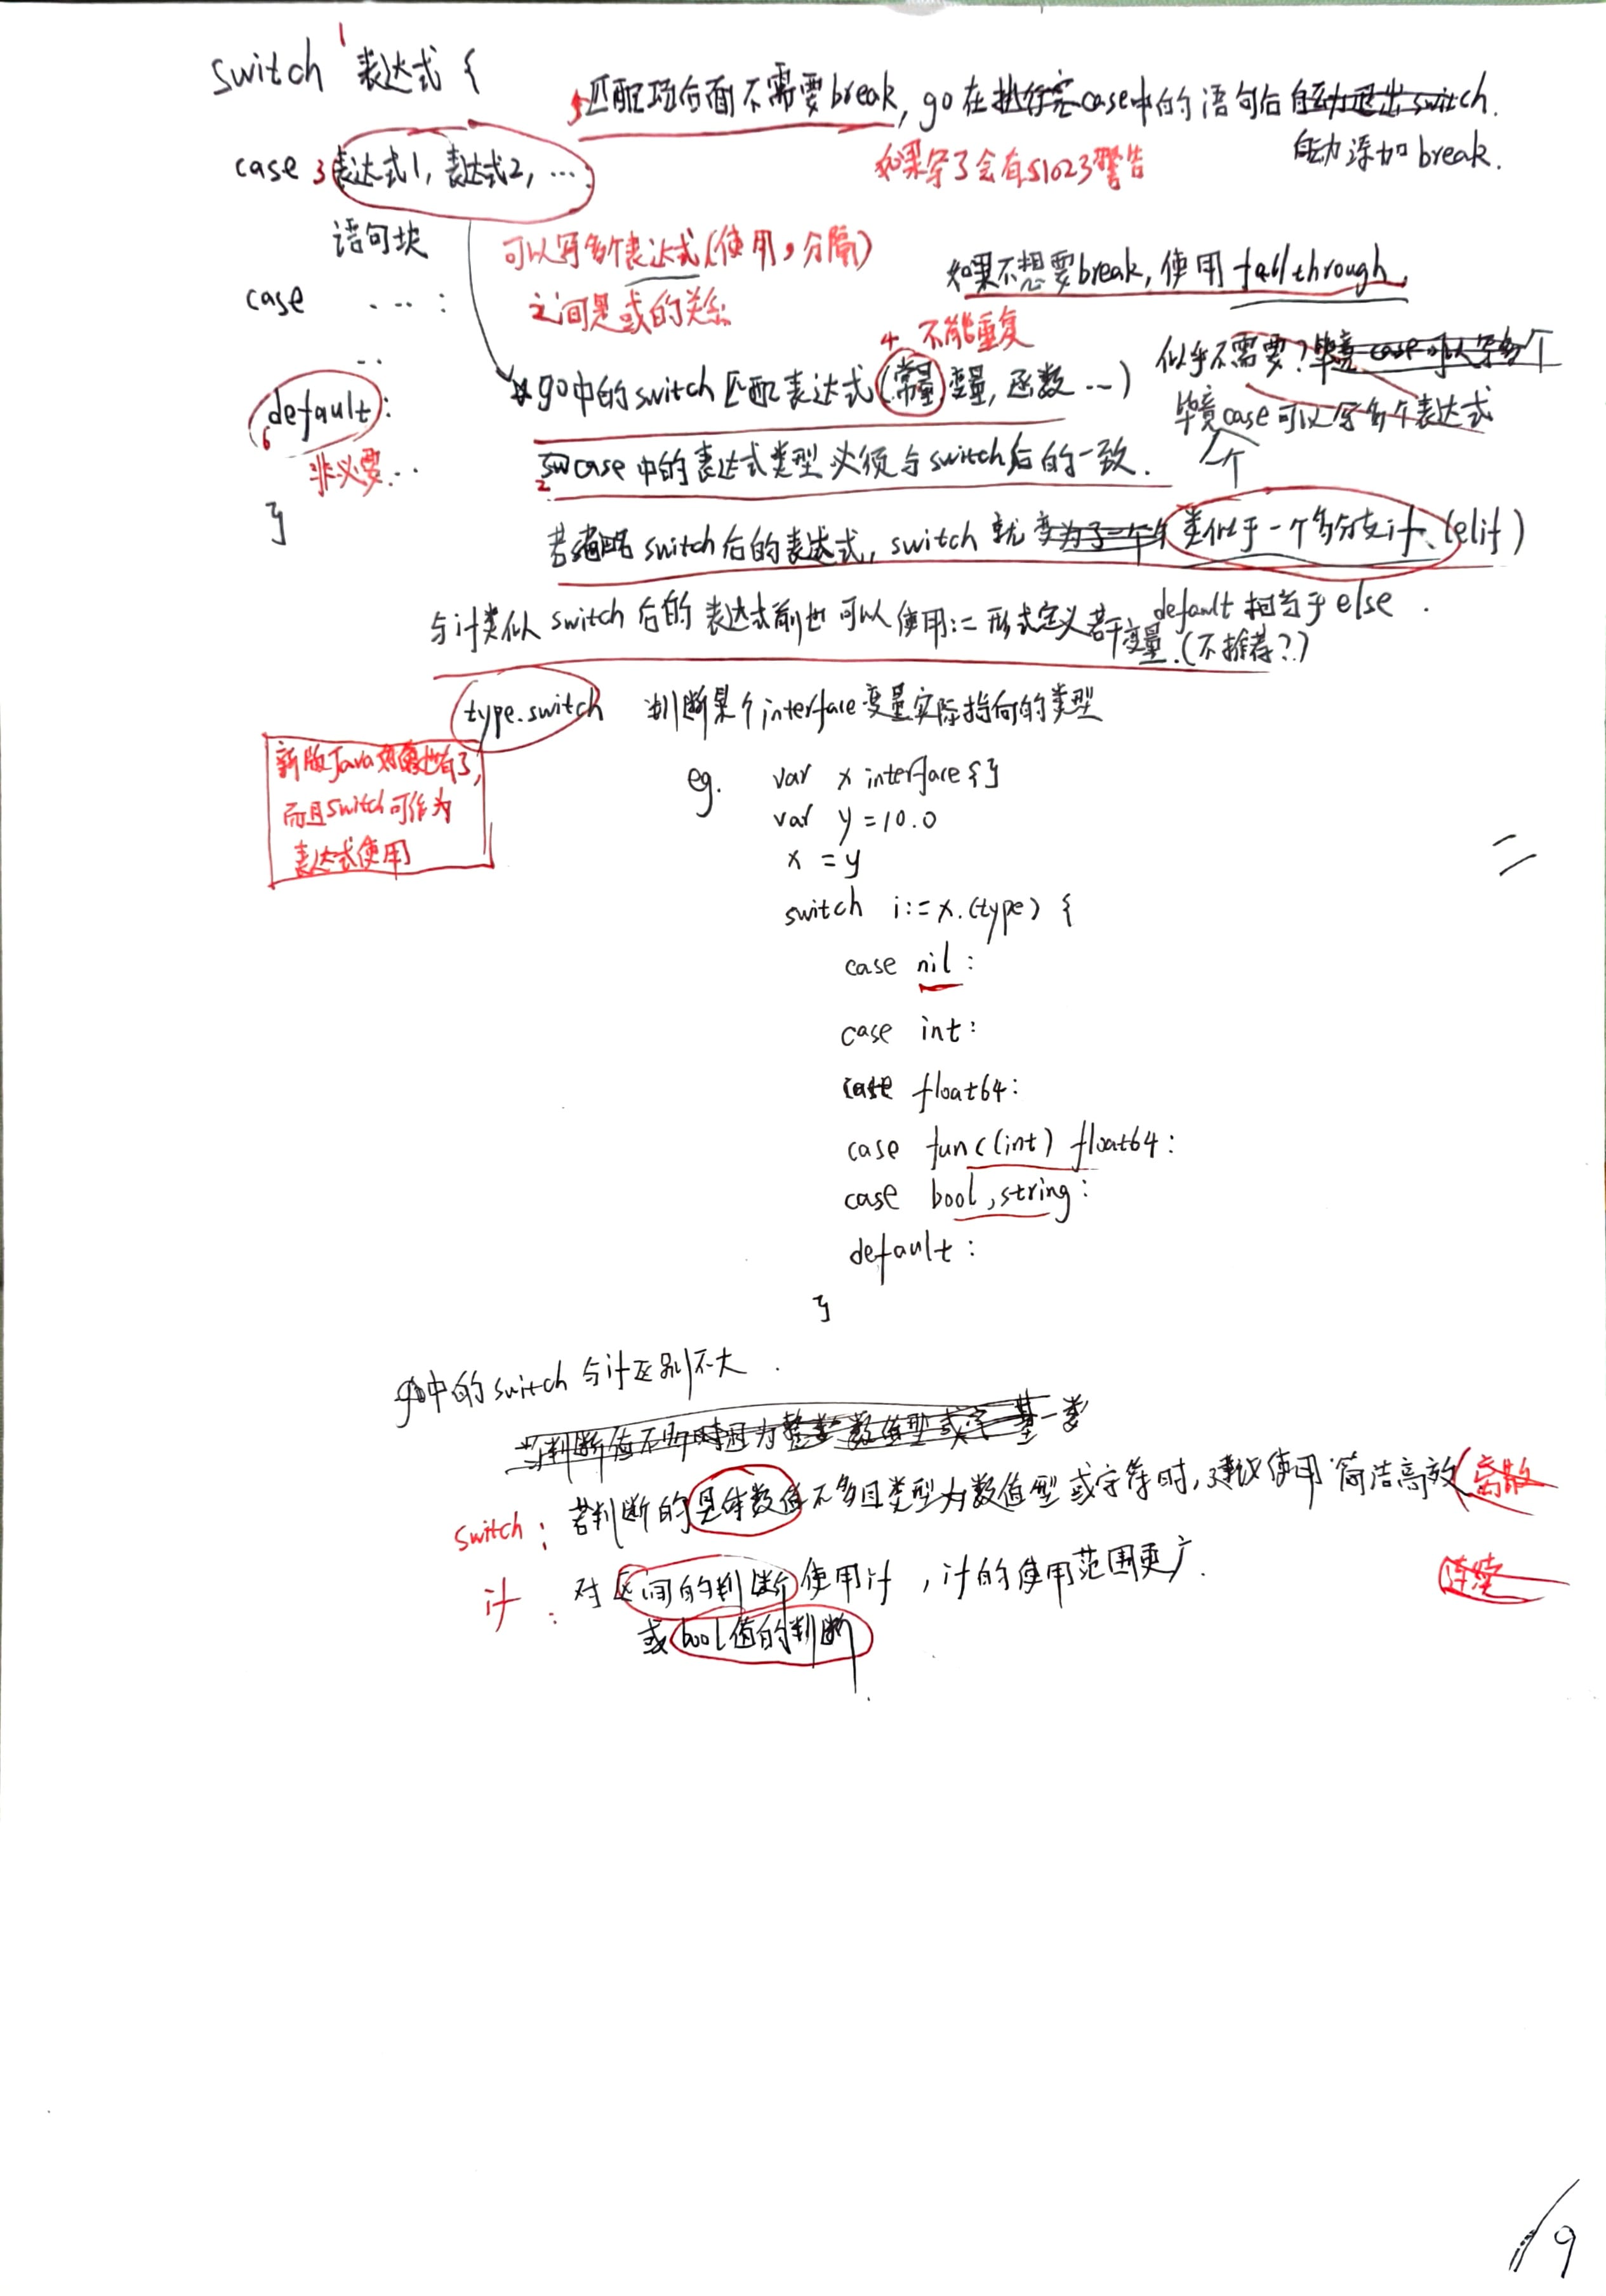 switch 1 表达式 {
5 匹配项后面不需要break, go在执行完case中的语句后自动退出switch.
自动添加break.
如果写了会有S1023警告
case 3 表达式1, 表达式2, …:
语句块
可以写多个表达式(使用,分隔)
之间是或的关系
如果不想要break, 使用fallthrough.
case …:
4 不能重复
似乎不需要? 毕竟case可以写多个
毕竟case可以写多个表达式
个
..
go中的switch匹配表达式(常量,变量,函数…)
default:
6
非必要..
2 case中的表达式类型必须与switch后的一致.
}
若省略switch后的表达式, switch就变为了一个类似于一个多分支if、(elif)
default相当于else.
与if类似switch后的表达式前也可以使用:=形式定义若干变量.(不推荐?)
type.switch 判断某个interface变量实际指向的类型
新版Java好像也有了,
而且switch可作为
表达式使用
eg. var x interface{}
var y=10.0
x=y
switch i:=x.(type) {
case nil:
case int:
case float64:
case func(int) float64:
case bool,string:
default:
}
go中的switch与if区别不大.
switch: 若判断的具体数值不多且类型为数值型或字符时,建议使用 简洁高效 离散
if: 对区间的判断使用if, if的使用范围更广. 连续
或bool值的判断
19